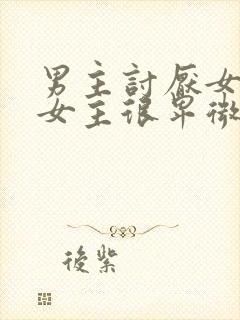 男主討厭女
女主很卑微
後紫